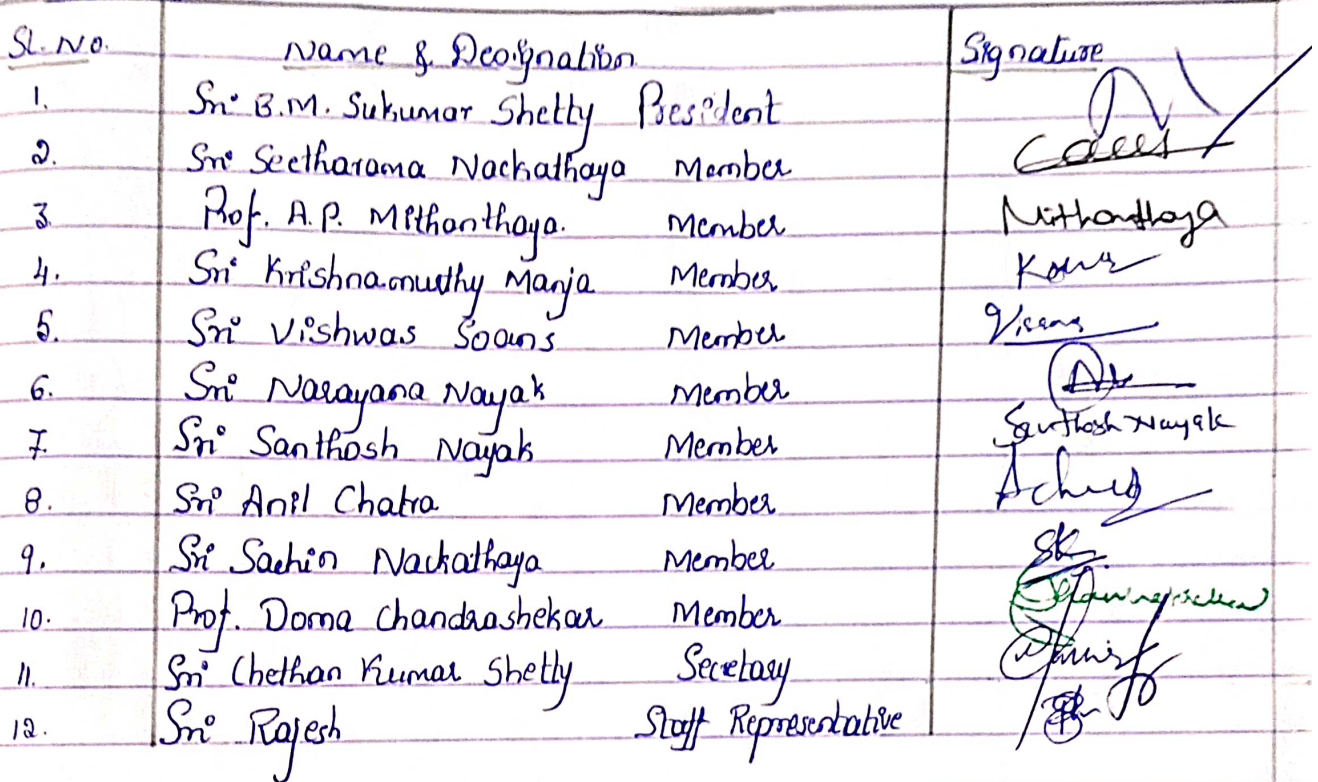 Sl. No. Name & Designation Signature
1. Sri B.M. Sukumar Shetty President
2. Sri Seetharama Nackathaya Member
3. Prof. A.P. Mithanthaya. Member Mithanthaya
4. Sri Krishnamurthy Manja Member
5. Sri Vishwas Soans Member
6. Sri Narayana Nayak Member
7. Sri Santhosh Nayak Member Santhosh Nayak
8. Sri Anil Chatra Member
9. Sri Sachin Nackathaya Member
10. Prof. Doma Chandrashekar Member
11. Sri Chethan Kumar Shetty Secretary
12. Sri Rajesh Staff Representative